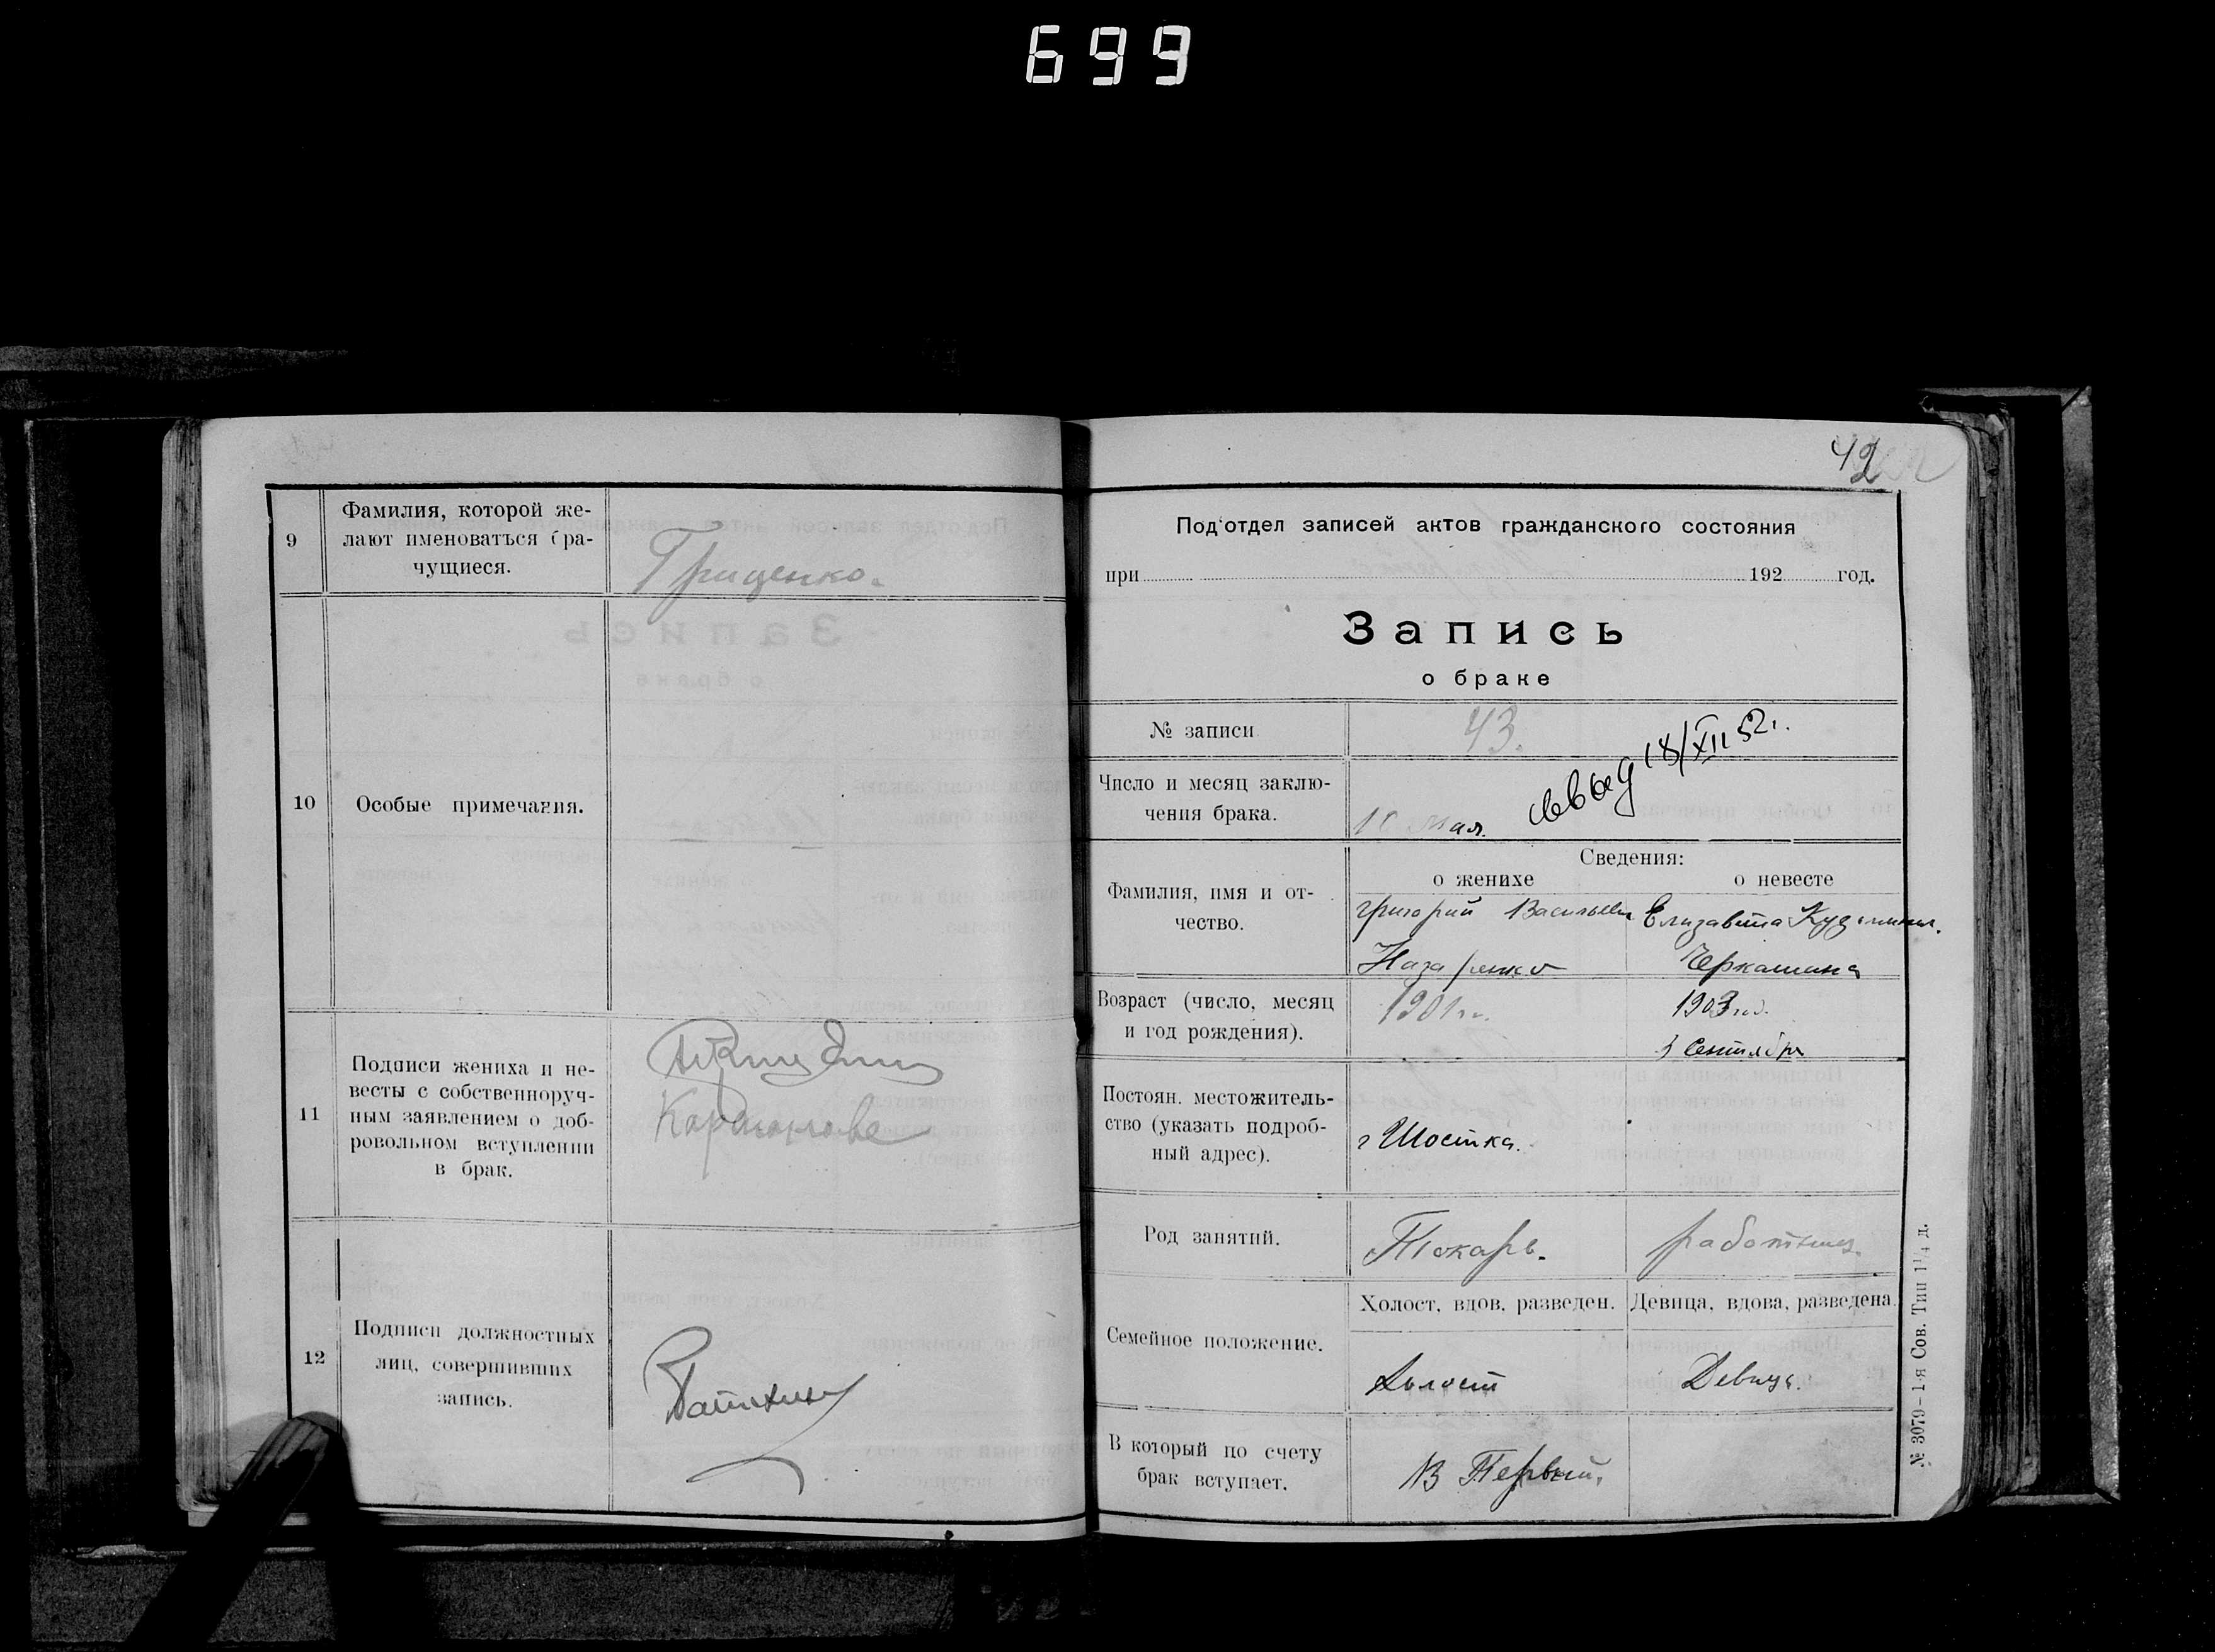 699
9
Фамилия, которой же-
лают именоваться бра-
чущиеся.
Гриценко.
10
Особые примечания.
11
Подписи жениха и не-
весты с собственноруч-
ным заявлением о доб-
ровольном вступлении
в брак.
12
Подписи должностных
лиц, совершивших
запись.
42
Под'отдел записей актов гражданского состояния
при 192 год.
Запись
о браке
№ записи
43.
18/XII 52г.
Число и месяц заклю-
чения брака.
мая.
Сведения:
о женихе
о невесте
Фамилия, имя и от-
чество.
Григорий Васильевич
Назаренко
Елизавета
Черкашина
Возраст (число, месяц
и год рождения).
1901 г.
1903 год.
Сентября
Постоян. местожитель-
ство (указать подроб-
ный адрес).
г Шостка.
Род занятий.
Токарь.
работница.
Семейное положение.
Холост, вдов, разведен.
Девица, вдова, разведена.
Холост
Девица.
В который по счету
брак вступает.
В Первый.
№ 3079-1-я Сов. Тип 1¼ д.